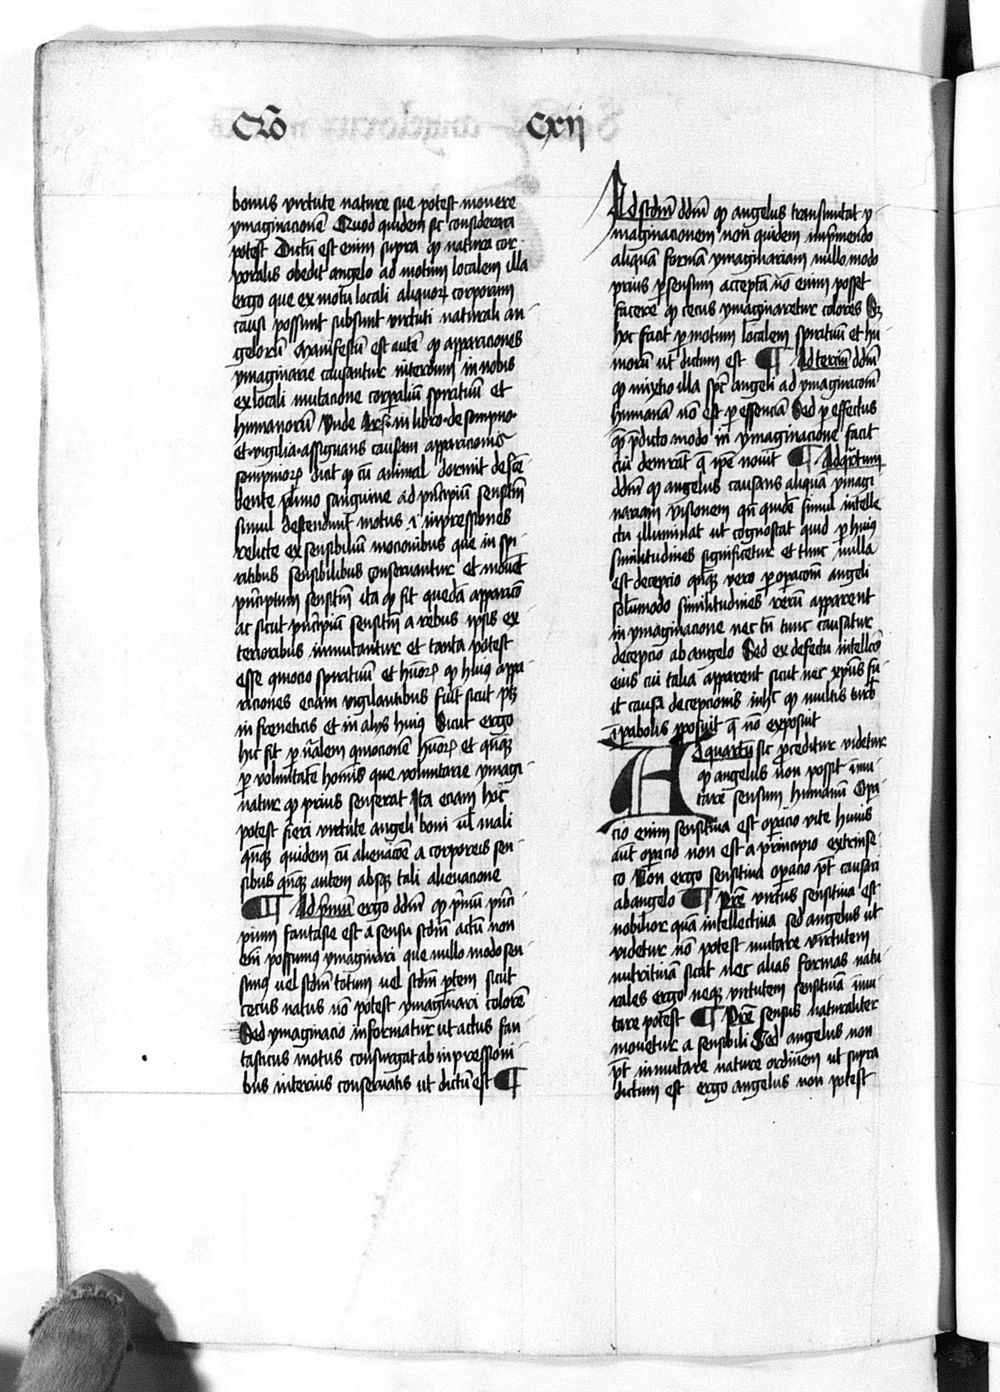 Q̄o
Cxij
bonus virtute nature sue potest mouere
ymaginacionē Quod quidem sic considerari
potest Dictū est enim supra qp natura cor
poralis obedit angelo ad motum localem illa
ergo que ex motu locali aliquor corporum
causi possunt subsunt virtuti naturali an
gelorū Manifestum est autē qp appariciones
ymaginarie causantur interdum in nobis
ex locali mutacione corpaliū spirituū et
humanorū Vnde Ar in libro de sompno
et vigilia assignans causam apparicionis
sompnior dicit qp cū animal dormit descē
dente plurimo sanguine ad pncipiū sensitiū
simul descendunt motus i inpressiones
relicte ex sensibiliū mocionibus que in spi
ritibus sensibilibus conseruantur et mouēt
pncipium sensitiū ita qp fit quedā apparicō
ac sicut pncipiū sensitiū a rebus ipsis ex
terioribus inmutantur et tanta potest
esse cmocio spirituū et hūor qp huius appa
riciones eciam vigilantibus fiūt sicut ptz
in freneticis et in alijs huius Sicut ergo
hic fit p nālem cmocionē hūor et qnqz
p voluntatē hominis que voluntarie ymagi
natur qp prius senserat Ita eciam hoc
potest fieri virtute angeli boni ul mali
qnqz quidem cū alienacōe a corporeis sen
sibus qnqz autem absqz tali alienacione
¶ Ad pmū ergo ddm qp pmū pnci
pium fantasie est a sensu scdm actū non
em possumus ymaginari que nullo modo sen
simus uel scdm totum uel scdm ptem sicut
cecus natus nō potest ymaginari colorē
Sed ymaginacio informatur ut actus fan
tasticus motus consurgat ab inpressioni
bus interius conseruatis ut dictū est ¶
Ad scdm ddm qp angelus transmutat y
maginacionem non quidem inprimendo
aliquā formā ymaginariam nullo modo
prius p sensum acceptā nō enim posset
facere qp cecus ymaginaretur colores Sz
hoc facit p motum localem spirituū et hu
morum ut dictum est ¶ Ad terciū ddm
qp mixtio illa spc angeli ad ymaginacōm
humanā nō est p essenciā Sed p effectus
quē pdicto modo in ymaginacione facit
cui demrāt q ipe nouit ¶ Ad qrtum
ddm qp angelus causans aliquā ymagi
nariam visionem qn quidē simul intelle
ctu illuminat ut cognoscat quid p huius
similitudines significetur et tunc nulla
est decepcio qnqz vero p opacōm angeli
solummodo similitudines rerū apparent
in ymaginacione nec tn tunc causatur
decepcio ab angelo Sed ex defectu intellcō
eius cui talia apparent sicut nec xpus fu
it causa decepcionis in hc qp multis turb
in pabolis pposuit q nō exposuit
Ad quartū sic proceditur videtur
qp angelus non possit inmu
tare sensum humanū Opa
cio enim sensitiua est opacio vite huius
aut opacio non est a principio extrinse
co Non ergo sensitiua opacio pt causari
ab angelo ¶ Pre virtus sensitiua est
nobilior quā intellectiua sed angelus ut
videtur nō potest mutare virtutem
nutritiuā sicut nec alias formas natu
rales ergo neqz virtutem sensitiuā inmu
tare potest ¶ Pre sensus naturaliter
mouetur a sensibili Sed angelus non
pt inmutare nature ordinem ut supra
dictum est ergo angelus non potest